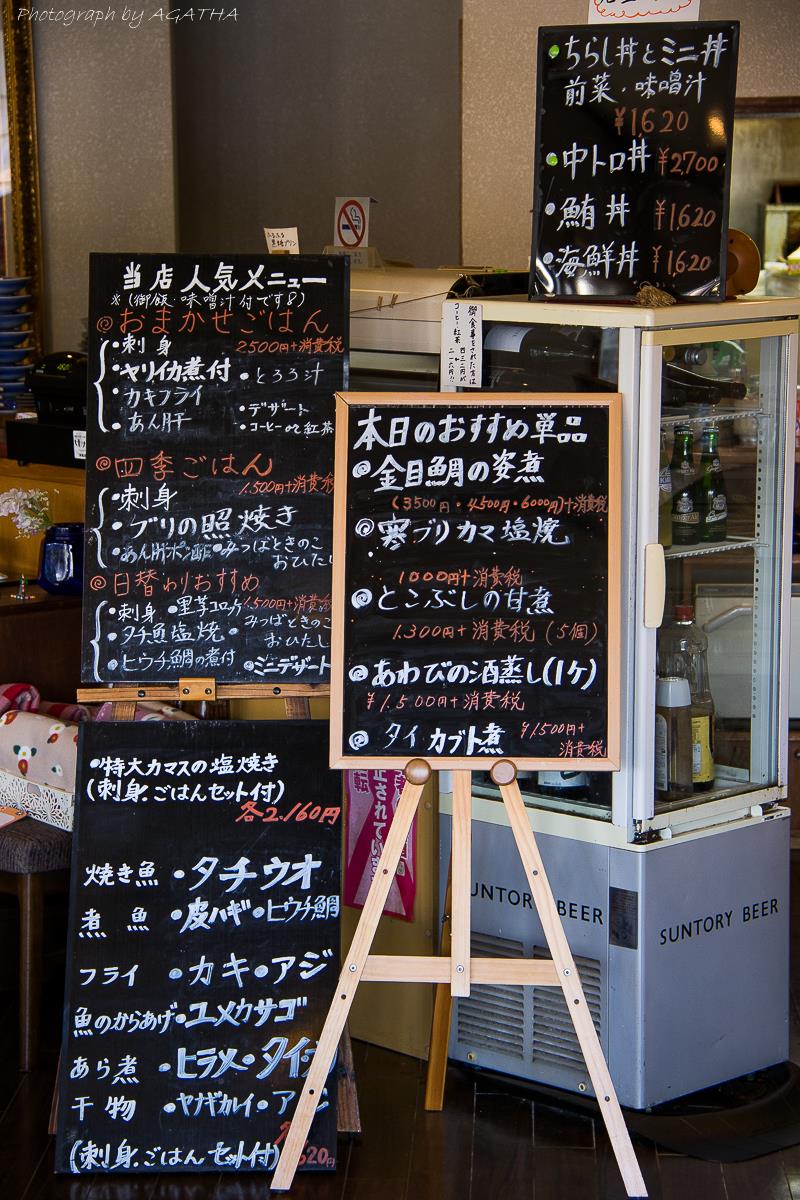 Photograph by AGATHA
ちらし丼とミニ丼
前菜・味噌汁
¥1,620
中トロ丼 ¥2700
鮪丼 ¥1620
海鮮丼 ¥1,620
ふるふる
黒糖プリン
当店人気メニュー
※(御飯・味噌汁付です
おまかせごはん
・刺身 2500円+消費税
・ヤリイカ煮付 ・とろろ汁
・カキフライ ・デザート
・あん肝 ・コーヒーor紅茶
四季ごはん
1.500円+消費税
・刺身
・ブリの照焼き
・あん肝ポン酢 ・みつばときのこ
おひたし
日替わりおすすめ
・刺身 ・里芋コロッケ 1,500円+消費税
・タチ魚塩焼 ・みつばときのこ
おひたし
・ヒウチ鯛の煮付 ・ミニデザート
御食事をされた方は
コーヒー・紅茶
本日のおすすめ単品
金目鯛の姿煮
(3500円・4500円・6000円)+消費税
寒ブリカマ塩焼
1000円+消費税
とこぶしの甘煮
1.300円+消費税(5個)
あわびの酒蒸し(1ケ)
¥1,500円+消費税
タイカブト煮 ¥1500円+
消費税
・特大カマスの塩焼き
(刺身.ごはんセット付)
各2.160円
焼き魚 ・タチウオ
煮魚 ・皮ハギ・ヒウチ鯛
フライ ・カキ・アジ
魚のからあげ・ユメカサゴ
あら煮 ・ヒラメ・タイ
干物 ・ヤナギカレイ・ア
(刺身.ごはんセット付)
620円
されています
SUNTORY BEER
SUNTORY BEER